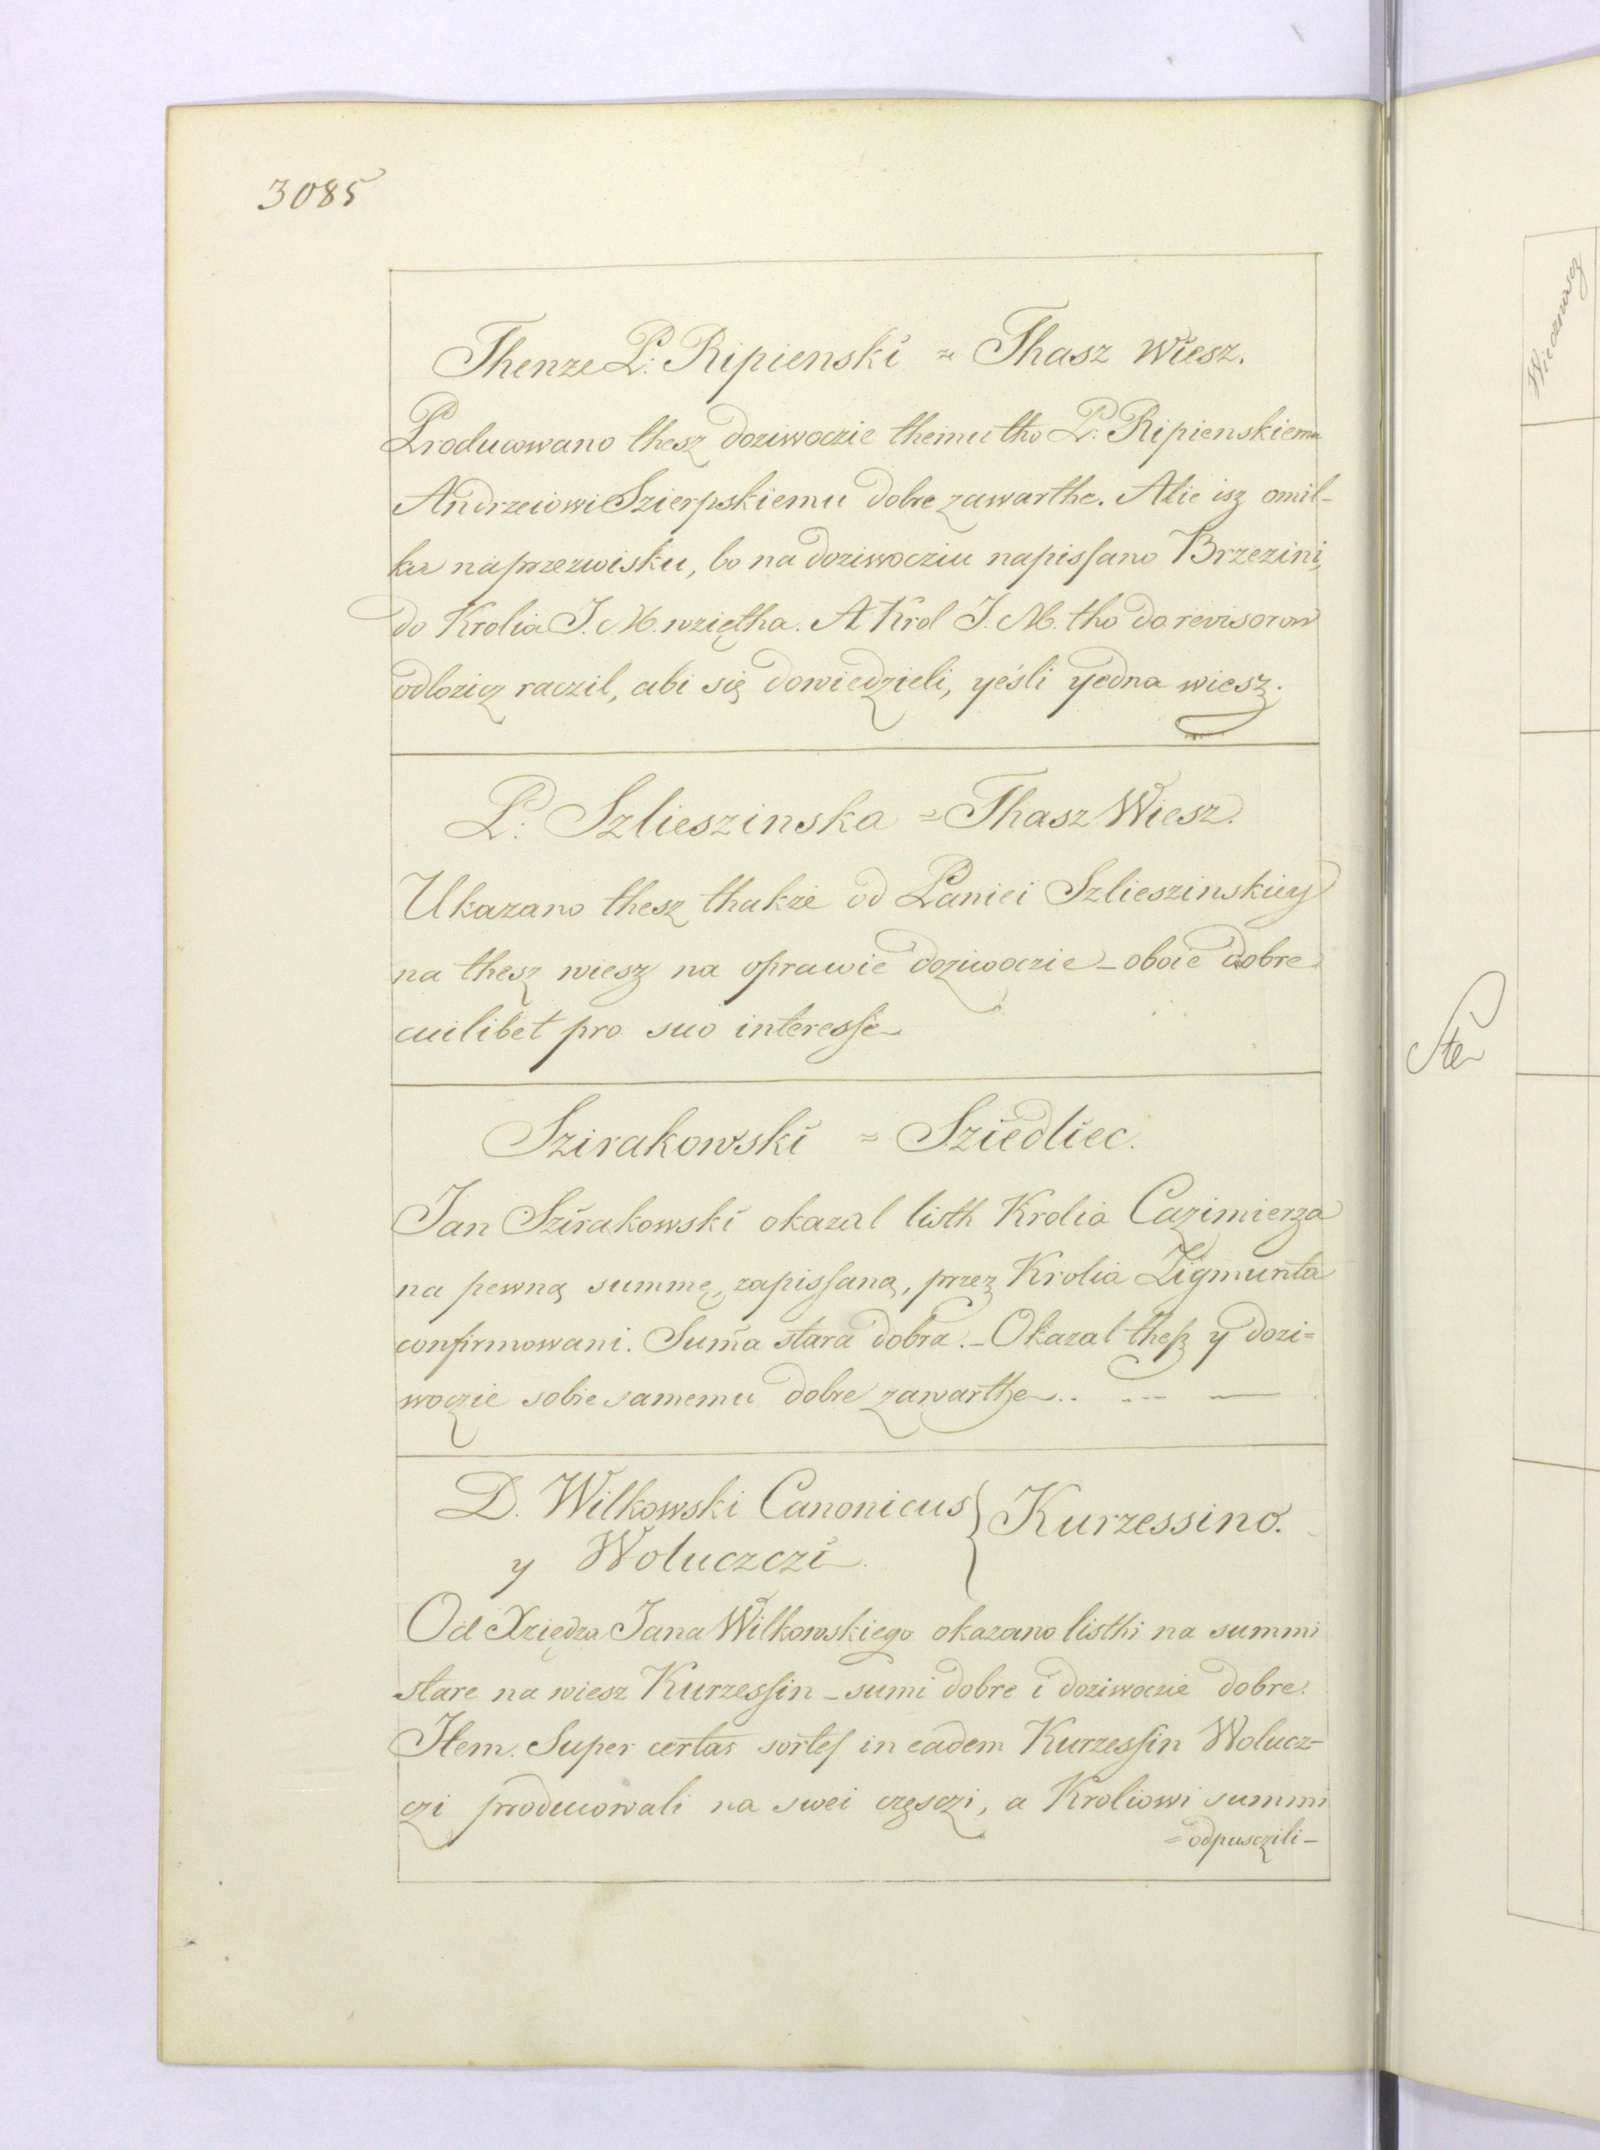 3085
Thenze P. Ripienski = Thasz wiesz.
Producowano thesz doziwoczie themutho P. Ripienskiemu
Andrzeiowi Szierpskiemu dobre zawarthe. Alie isz omil-
ka na przezwisku, bo na doziwocziu napissano Brzezini,
do Krolia J. M. wziętha. A Krol J. M. tho do revisorow
odlozicz raczil, abi się dowiedzieli, yésli yedna wiesz.
P. Szlieszinska = Thasz Wiesz.
Ukazano thesz thakze od Paniei Szlieszinskiey
na thesz wiesz na oprawie doziwoczie – oboie dobre
cuilibet pro suo interesse
Szirakowski = Sziedliec.
Jan Szirakowski okazal listh Krolia Cazimierza
na pewną summę, zapissaną, przez Krolia Zigmunta
confirmowani. Sum̃a stara dobra. – Okazal thesz y dozi=
woczie sobie samemu dobre zawarthe
D. Wilkowski Canonicus } Kurzessino.
y Woluczczi.
Od Xziędza Jana Wilkowskiego okazano listhi na summi
stare na wiesz Kurzessin – sumi dobre i doziwoczie dobre.
Item. Super certas sortes in eadem Kurzessin Wolucz-
czi producowali na swei częsczi, a Kroliowi summi
= odpusczili –
Ste